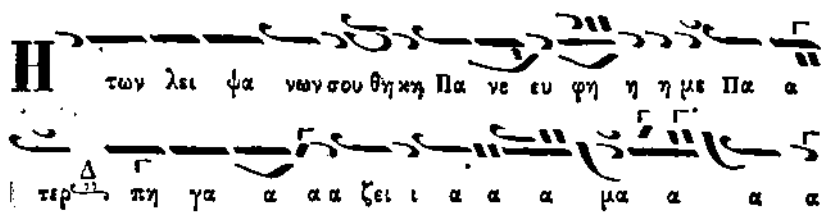 Η των λει ψα νων σου θη κη Πα νε ευ φη η η με Πα α
τερ Δ πη γα α α α ζει ι α α α μα α α α